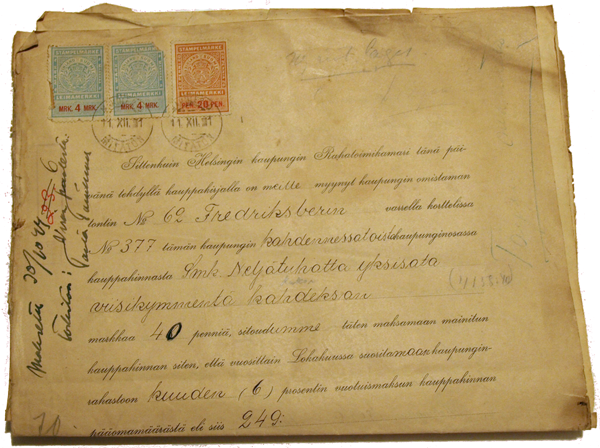 STÄMPELMÄRKE
STÄMPELMÄRKE
STÄMPELMÄRKE
LEIMAMERKKI
LEIMAMERKKI
LEIMAMERKKI
MRK. 4 MRK.
MRK. 4 MRK.
PEN. 20 PEN.
11.XII.
11.XII.
MITÄTÖN
MITÄTÖN
Sittenkuin Helsingin kaupungin Rahatoimikamari tänä päi-
vänä tehdyllä kauppakirjalla on meille myynyt kaupungin omistaman
tontin No 6a Fredriksberin varrella korttelissa
No 377 tämän kaupungin kahdennessatoista kaupunginosassa
kauppahinnasta Smk Neljätuhatta yksisata
viisikymmentä kahdeksan
(4158:40)
markkaa 40 penniä, sitoudumme täten maksamaan mainitun
kauppahinnan siten, että vuosittain Lokakuussa suoritamaan kaupungin-
rahastoon kuuden (6) prosentin vuotuismaksun kauppahinnan
pääomamäärästä eli siis 249: